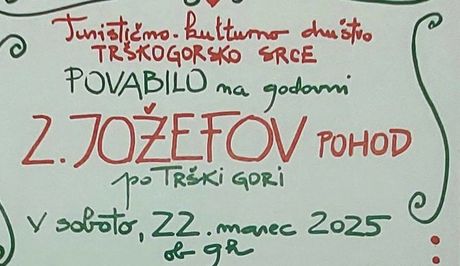 Turistično-kulturno društvo
TRŠKOGORSKO SRCE
POVABILO na godovni
2. JOŽEFOV POHOD
po TRŠKI GORI
v soboto, 22. marec 2025
ob 9h